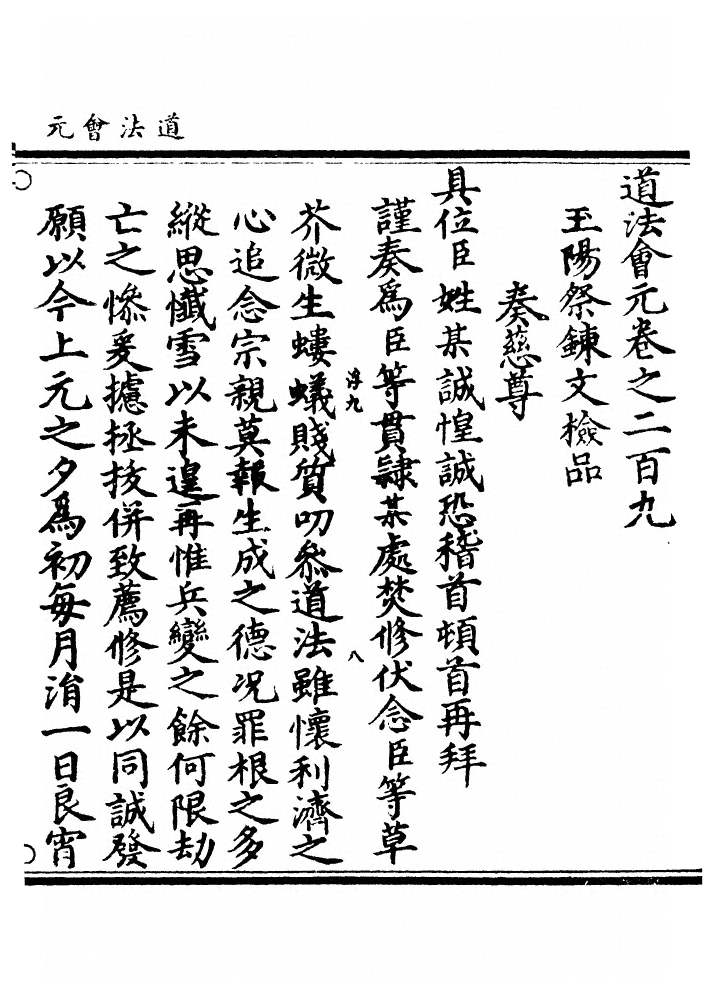 道法會元
道法會元卷之二百九
玉陽祭鍊文檢品
奏慈尊
具位臣姓某誠惶誠恐稽首頓首再拜
謹奏爲臣等貫隸某處焚修伏念臣等草
芥微生螻蟻賤質叨叅道法雖懷利濟之
浮九
八
心追念宗親莫報生成之德况罪根之多
縱思懺雪以未遑再惟兵變之餘何限劫
亡之慘爰攄拯拔併致薦修是以同誠發
願以今上元之夕爲初每月涓一日良宵